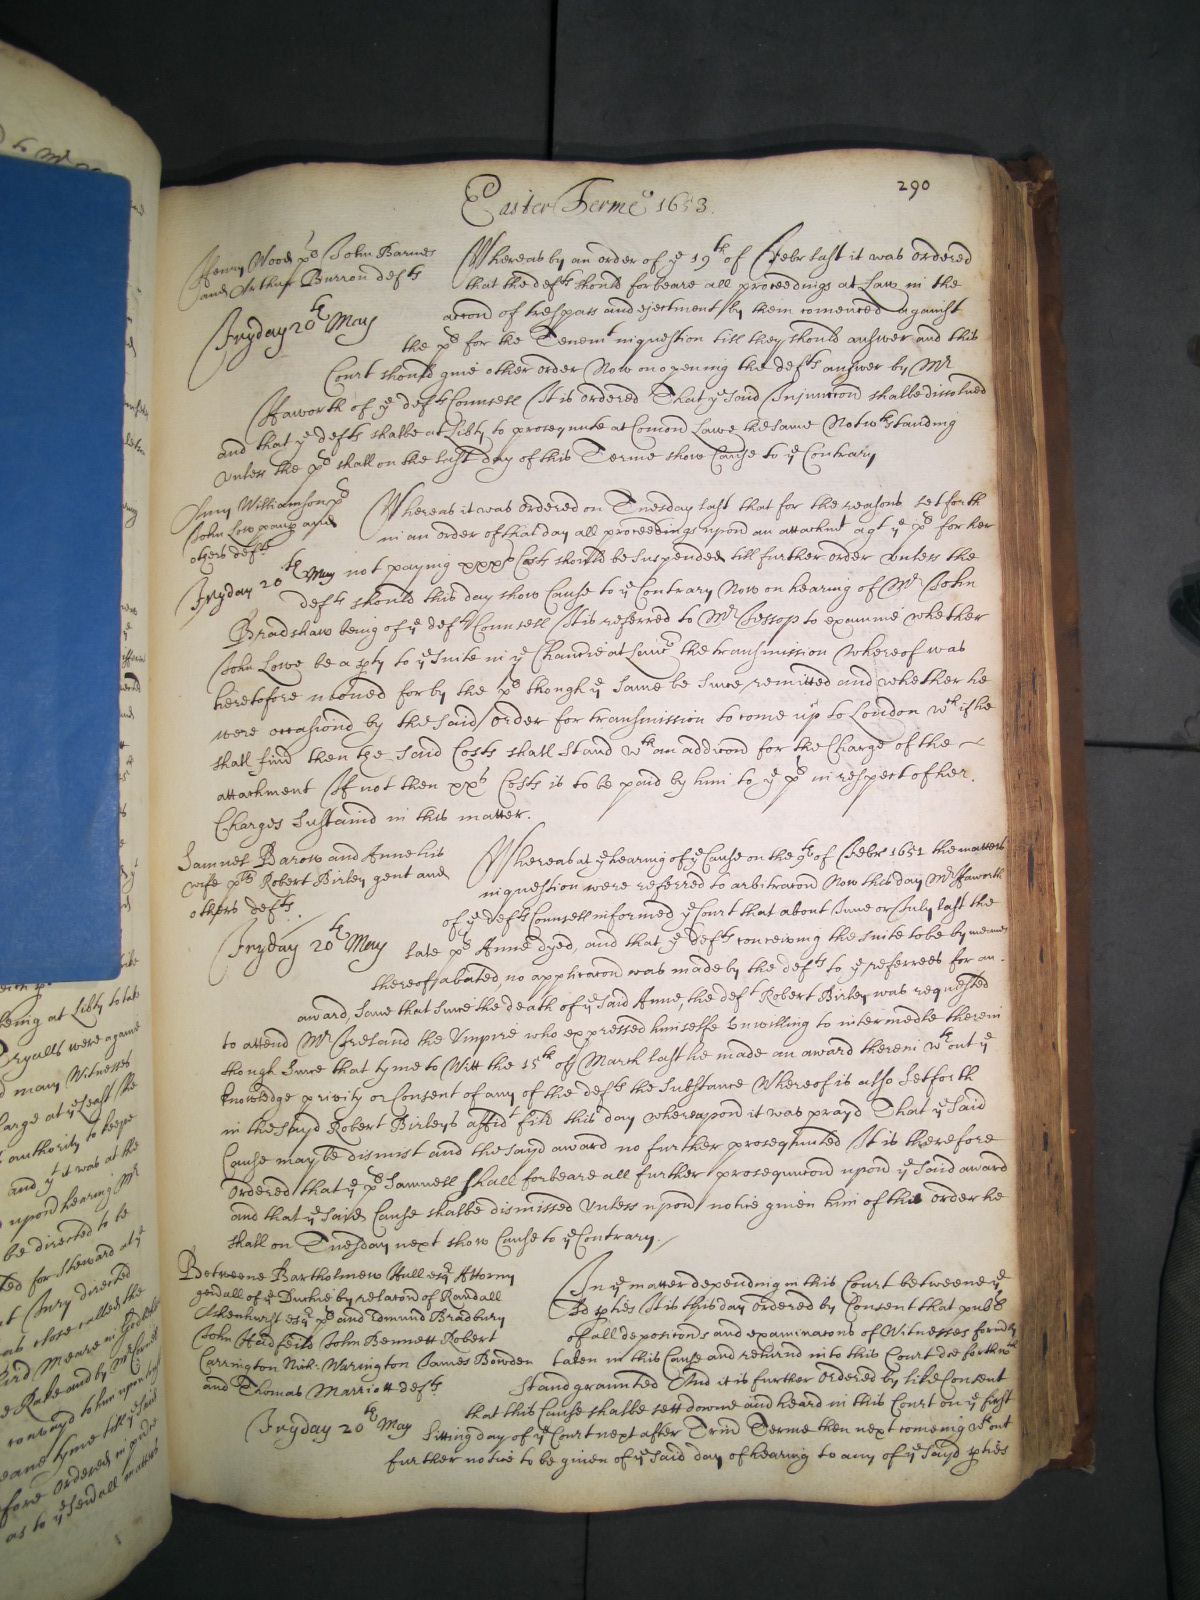 290
Easter Terme 1653.
Henry Wood pt John Barnes
and Arthur Burron defts
Fryday 20th May
Whereas by an order of ye 19th of Febr last it was ordered
that the defts should forbeare all proceedings at Law in the
accon of trespass and ejectment by them comenced against
the pt for the Tenemt in question till they should answer and this
Court should give other order Now on opening the defts answer by Mr
Haworth of ye defts Counsell It is ordered That ye said Injunccon shalbe dissolued
and that ye defts shalbe at Libty to prosequute at Comon Lawe the same Notwthstanding
vnless the pt shall on the last day of this Terme show Cause to ye Contrary
Williamson pt
John Low and
others defts
Fryday 20th May
Whereas it was ordered on Tuesday last that for the reasons set forth
in an order of that day all proceedings upon an attachmt agt ye pt for her
not paying xxxs Costs should be suspended till further order vnless the
defts should this day show Cause to ye Contrary Now on hearing of Mr John
Bradshaw being of ye defts Counsell It is referred to Mr Jessop to examine whether
John Lowe be a pty to ye Suite in ye Chancie at Lanc the transmission whereof was
heretofore moued for by the pt though ye same be since remitted and whether he
were occasiond by the said order for transmission to come up to London wch if he
shall find then the said Costs shall stand wth an addicon for the Charge of the
attachment If not then xxs Costs is to be paid by him to ye pt in respect of her
Charges Sustaind in this matter.
Samuel Barow and Anne his
wife pts Robert Birley gent and
others defts.
Fryday 20th May
Whereas at ye hearing of ye Cause on the 9th of Febr 1651 the matters
in question were referred to arbitracon Now this day Mr Haworth
of ye defts Counsell informed ye Court that about June or July last the
late pt Anne dyed, and that ye defts conceiving the suite to be by meanes
thereof abated, no applicacon was made by the defts to ye referrees for an
award, saue that since the death of ye said Anne, the deft Robert Birley was requested
to attend Mr Ireland the Vmpire who expressed himselfe vnwilling to intermedle therein
though since that tyme to Witt the 15th of March last he made an award therein wthout ye
knowledge privity or Consent of any of the defts the substance Whereof is also setforth
in the sayd Robert Birley's affidt filed this day whereupon it was prayd That ye said
Cause may be dismist and the sayd award no further prosequuted It is therefore
Ordered that ye pt Samuell shall forbeare all further prosequucon upon ye said award
and that ye said Cause shalbe dismissed Vnless upon notice giuen him of this order he
shall on Tuesday next show Cause to ye Contrary.
Betweene Bartholmew Hall esqr Attorny
genall of ye Duchie by relacon of Randall
Ashenhurst esqr pt and Edmund Bradbury
John Hadfeild John Bennett Robert
Carrington Nich: Warington James Bowden
and Thomas Marriott defts
Fryday 20th May
In ye matter depending in this Court betweene ye
sd pties It is this day ordered by Consent that publ
of all deposicons and examinacons of Witnesses formerly
taken in this Cause and returnd into this Court doe forthwth
stand graunted And it is further ordered by like Consent
that this Cause shalbe sett downe and heard in this Court on ye first
sitting day of ye Court next after Trin Terme then next comeing wthout
further notice to be giuen of ye said day of hearing to any of ye sayd pties
being at Libty to take
ryalls were againe
many Witnesses
large at ye least
authority to keepe
and yt it was at the
upon hearing Mr
be directed to be
for steward at ye
Jury directed
close called the